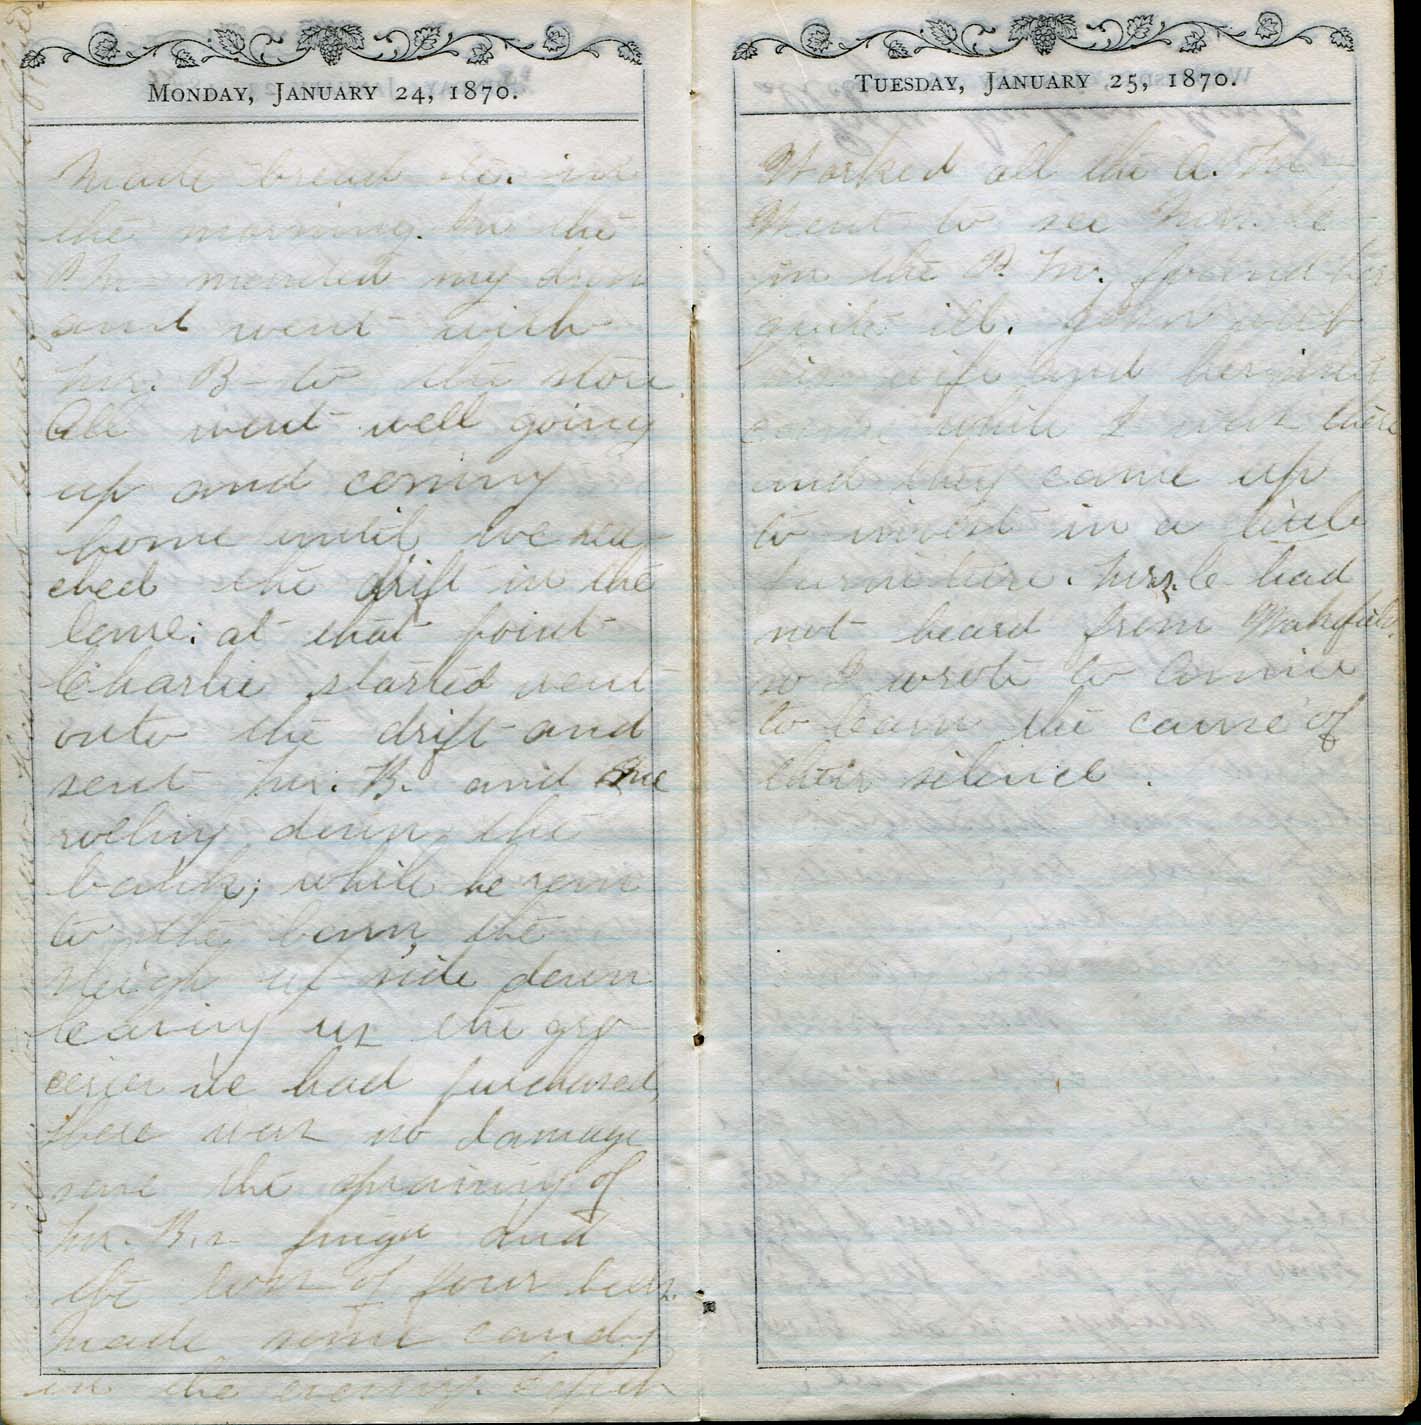 MONDAY, JANUARY 24, 1870.
Made bread &c. in
the morning. In the
P.M. mended my dress
and went with
Mr. B- to the store
All went well going
up and coming
home until we rea-
ched the drift in the
lane: at that point
Charlie started went
onto the drift and
sent Mr. B. and me
rolling down the
bank; while he ran
to the barn, the
sleigh up side down
leaving us the gro
ceries we had purchased,
there was no damage
save the spraining of
Mr. B.s finger and
the loss of four
Made some candy
in the evening.
TUESDAY, JANUARY 25, 1870.
Worked all the A. M
Went to see Mrs. Le
in the P. M. found her
quite ill. John with
his wife and
came while I was there
and they came up
to invest in a little
furniture. Mrs. Le had
not heard from Wakefield.
so I wrote to Annie
to learn the cause of
their silence.